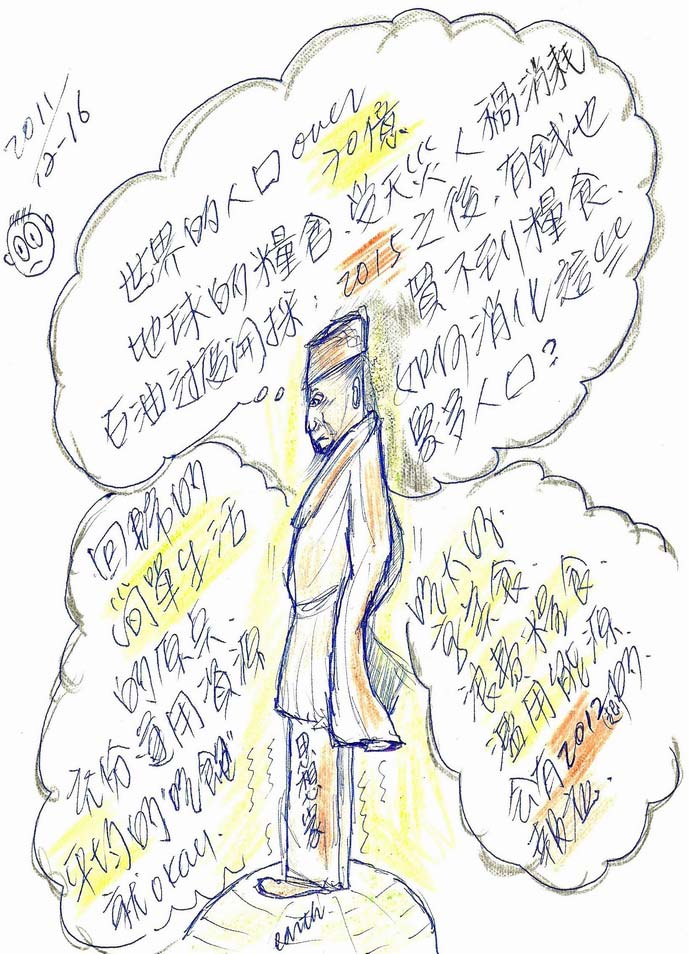 2011/
12-16
世界的人口 over 70億.
地球的糧食.受天災人禍消耗
石油过度開採. 2015之後.有錢也
買不到糧食.
如何消化這些
眾多人口?
回歸的
简單生活
的原点.
充份運用資源
平均的"吃飽"
就okay.
浪費糧食.
濫用能源.
2012
報應.
思想家
earth